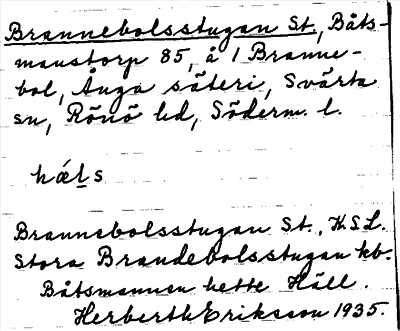 Brannebolsstugan St., Båts-
manstorp 85, å 1 Branne-
bol, Ånga säteri, Svärta
sn, Rönö hd, Söderm. l.
hæls
Brannebolsstugan St., K.S.L.
Stora Brandebolsstugan kb.
Båtsmannen hette Häll.
Herberth Eriksson 1935.